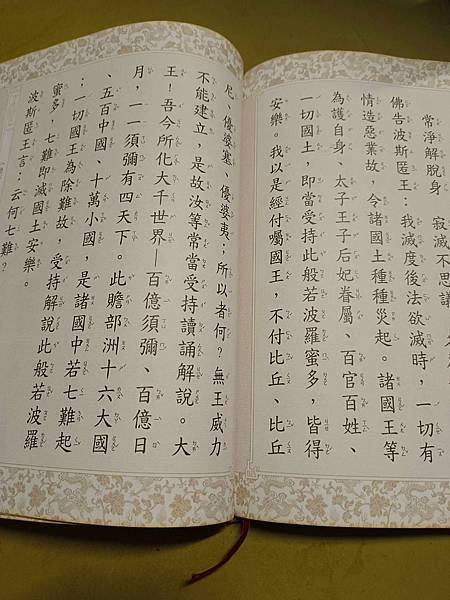 常淨解脫身　寂滅不思議
佛告波斯匿王：我滅度後法欲滅時，一切有
情造惡業故，令諸國土種種災起。諸國王等
為護自身、太子王子后妃眷屬、百官百姓、
一切國土，即當受持此般若波羅蜜多，皆得
安樂。我以是經付囑國王，不付比丘、比丘
尼、優婆塞、優婆夷；所以者何？無王威力
不能建立，是故汝等常當受持讀誦解說。大
王！吾今所化大千世界—百億須彌、百億日
月，一一須彌有四天下。此贍部洲十六大國
、五百中國、十萬小國，是諸國中若七難起
；一切國王為除難故，受持解說此般若波羅
蜜多，七難即滅國土安樂。
波斯匿王言：云何七難？